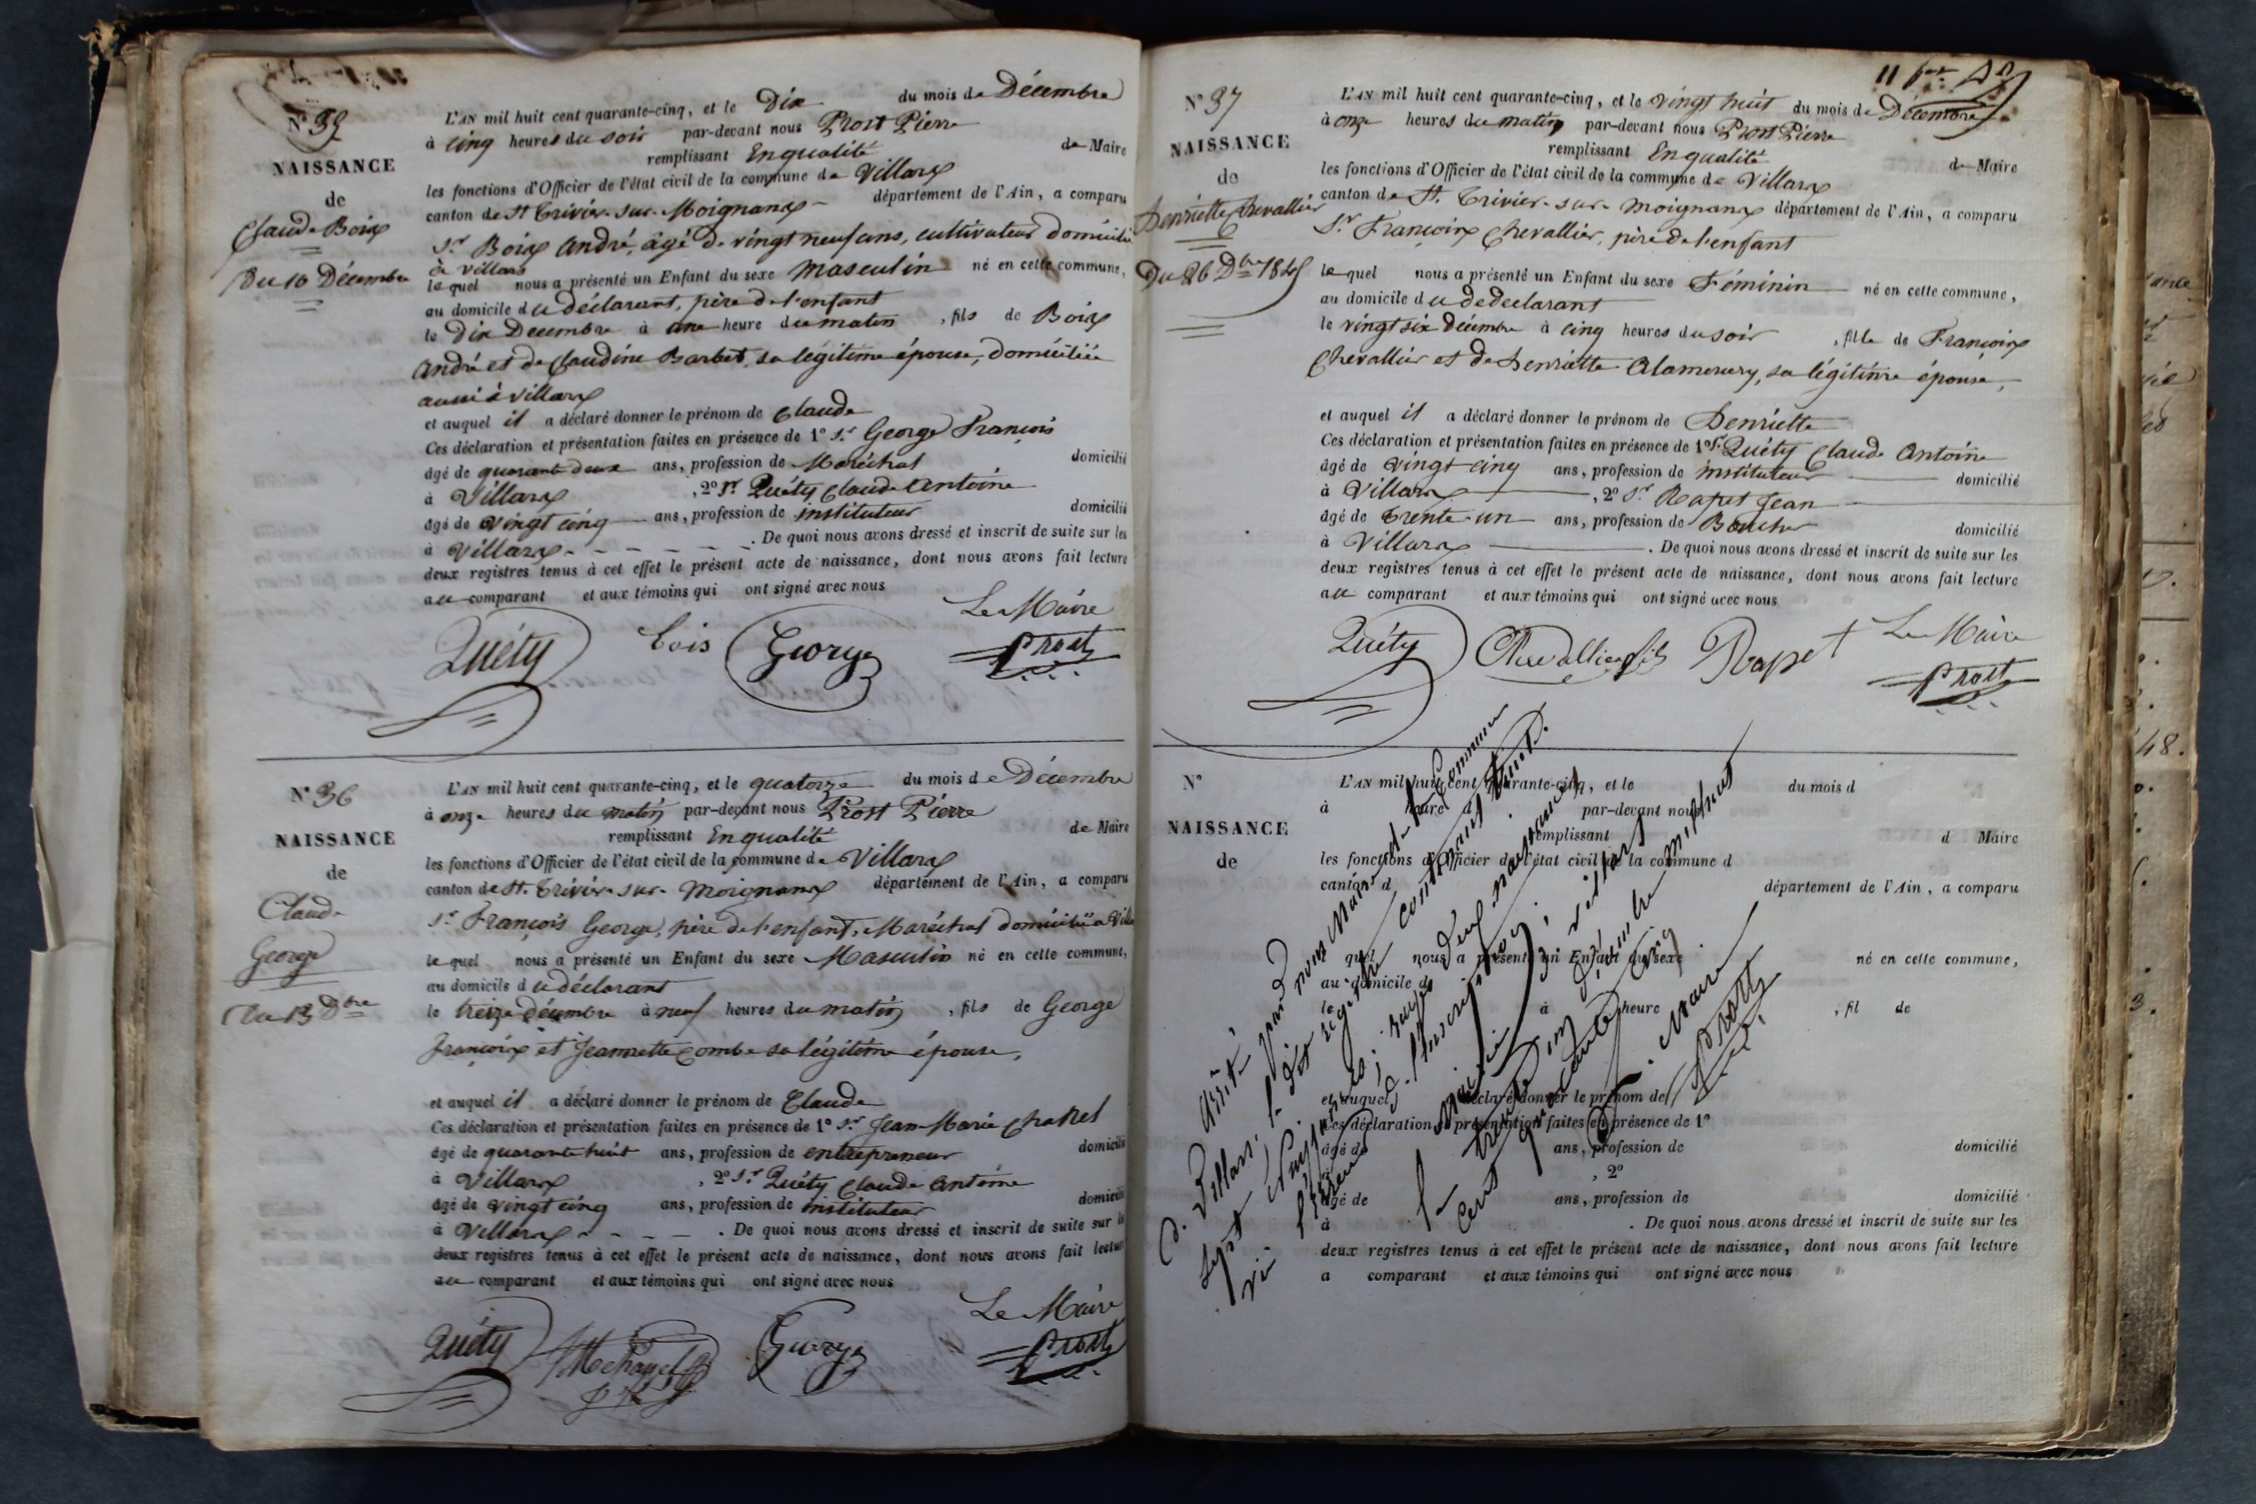 N° 35
NAISSANCE
de
Claude Boix
Du 10 Décembre
L'AN mil huit cent quarante-cinq, et le Dix du mois de Décembre
à cinq heures du soir par-devant nous Prost Pierre
remplissant En qualité de Maire
les fonctions d'Officier de l'état civil de la commune de Villars
canton de St Trivier-sur-Moignans département de l'Ain, a comparu
Sr Boix André, âgé de vingt neuf ans, cultivateur domicilié
à villars
lequel nous a présenté un Enfant du sexe masculin né en cette commune,
au domicile du déclarant, père de l'enfant
le Dix Decembre à une heure du matin, fils de Boix
André et de Claudine Barbet, sa légitime épouse, domiciliée
aussi à villars
et auquel il a déclaré donner le prénom de Claude
Ces déclaration et présentation faites en présence de 1° Sr George François
âgé de quarante deux ans, profession de Maréchal domicilié
à Villars, 2° Sr Quéty Claude Antoine
âgé de vingt cinq ans, profession de instituteur domicilié
à Villars - - - - - - . De quoi nous avons dressé et inscrit de suite sur les
deux registres tenus à cet effet le présent acte de naissance, dont nous avons fait lecture
au comparant et aux témoins qui ont signé avec nous
Le Maire
Quéty Bois George Prost
N° 36
NAISSANCE
de
Claude
George
Du 13 Dbre
L'AN mil huit cent quarante-cinq, et le quatorze du mois de Décembre
à onze heures du matin par-devant nous Prost Pierre
remplissant En qualité de Maire
les fonctions d'Officier de l'état civil de la commune de Villars
canton de St. Trivier-sur-Moignans département de l'Ain, a comparu
Sr François George, père de l'enfant, Maréchal domicilié a Villa
lequel nous a présenté un Enfant du sexe Masculin né en cette commune,
au domicile du déclarant
le treize décembre à neuf heures du matin, fils de George
François et Jeannette Combe sa légitime épouse,
et auquel il a déclaré donner le prénom de Claude
Ces déclaration et présentation faites en présence de 1° Sr Jean-Marie
âgé de quarante huit ans, profession de entrepreneur domicilié
à Villars, 2° Sr Quéty Claude Antoine
âgé de vingt cinq ans, profession de instituteur domicilié
à Villars - - - - . De quoi nous avons dressé et inscrit de suite sur les
deux registres tenus à cet effet le présent acte de naissance, dont nous avons fait lecture
au comparant et aux témoins qui ont signé avec nous
Le Maire
Quéty George Prost
N° 37
NAISSANCE
de
Henriette Chevallier
Du 26 Dbre 1845
L'AN mil huit cent quarante-cinq, et le vingt huit du mois de Décembre
à onze heures du matin par-devant nous Prost Pierre
remplissant En qualité de Maire
les fonctions d'Officier de l'état civil de la commune de Villars
canton de St. Trivier-sur-Moignans département de l'Ain, a comparu
Sr. François Chevallier, père de l'enfant
lequel nous a présenté un Enfant du sexe Féminin né en cette commune,
au domicile du dedeclarant
le vingt six décembre à cinq heures du soir, fille de François
Chevallier et de Henriette Alamercery, sa légitime épouse,
et auquel il a déclaré donner le prénom de Henriette
Ces déclaration et présentation faites en présence de 1° Sr Quéty Claude Antoine
âgé de vingt cinq ans, profession de instituteur domicilié
à Villars, 2° Sr Rapet Jean
âgé de trente-un ans, profession de Boucher domicilié
à Villars . De quoi nous avons dressé et inscrit de suite sur les
deux registres tenus à cet effet le présent acte de naissance, dont nous avons fait lecture
au comparant et aux témoins qui ont signé avec nous
Le Maire
Quéty Chevallier fils Rapet Prost
N°
NAISSANCE
de
L'AN mil huit cent quarante-cinq, et le du mois d
à heure d par-devant nous
remplissant d Maire
les fonctions d'Officier de l'état civil de la commune d
canton d département de l'Ain, a comparu
quel nous a présenté un Enfant du sexe né en cette commune,
au domicile d
le à heure, fil de
et auquel déclaré donner le prénom de
Ces déclaration et présentation faites en présence de 1°
âgé de ans, profession de domicilié
à, 2°
âgé de ans, profession de domicilié
à . De quoi nous avons dressé et inscrit de suite sur les
deux registres tenus à cet effet le présent acte de naissance, dont nous avons fait lecture
a comparant et aux témoins qui ont signé avec nous
Arrêté par nous Maire de la Commune
de Villars, le dit registre contenant trente
sept Naissances;
l'inscription des naissances
Mairie de Villars
le trente un décembre mil huit
cent quarante cinq
Le Maire
Prost